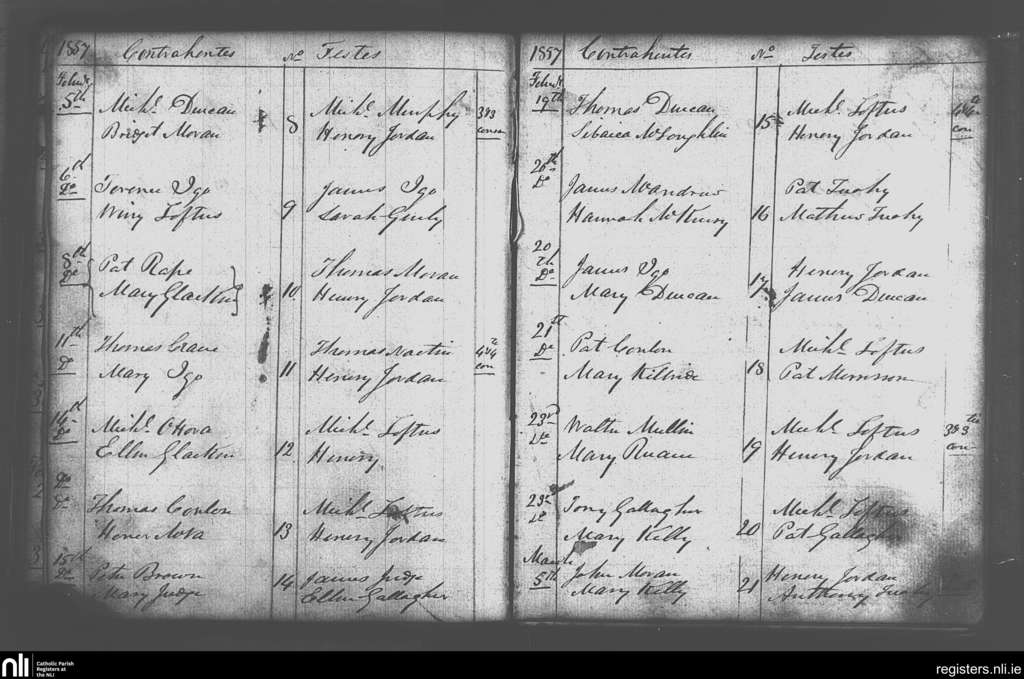 1887 Contrahentes No Testes
Feb
5th Michl. Duncan 8 Michl. Murphy 3&3
Bridget Moran Honory Jordan con
6th
Do Terence Igo James Igo
Winy Loftus 9 Sarah
8th
Do Pat Rape Thomas Moran
Mary Glackin 10 Henry Jordan
11th
D Thomas Crane Thomas 4&4
Mary Igo 11 Henery Jordan con
Do Michl. O'Hora Michl. Loftus
Ellen Glackin 12 Henery
Do
Do Thomas Conlon Michl. Loftus
Honor 13 Henery Jordan
15th
Do Peter Brown 14 James Judge
Mary Judge Ellen Gallagher
1887 Contrahentes No Testes
Feb
19th Thomas Duncan Michl. Loftus
McLoughlin 15 Henery Jordan con
20th
Do James McAndrew Pat Tuohy
Hannah 16 Mathew Tuohy
20
th
Do James Igo Henery Jordan
Mary Duncan 17 James Duncan
21st
Do Pat Conlon Michl. Loftus
Mary Kilbride 18 Pat Morrisson
23rd
Do Walter Mullin Michl. Loftus 3&3
Mary Ruane 19 Henery Jordan con
23rd
Do Tony Gallagher Michl. Loftus
Mary Kelly 20 Pat Gallagher
March
5th John Moran Henery Jordan
Mary Kelly 21 Anthony Tuohy
nli Catholic Parish
Registers at
the NLI
registers.nli.ie